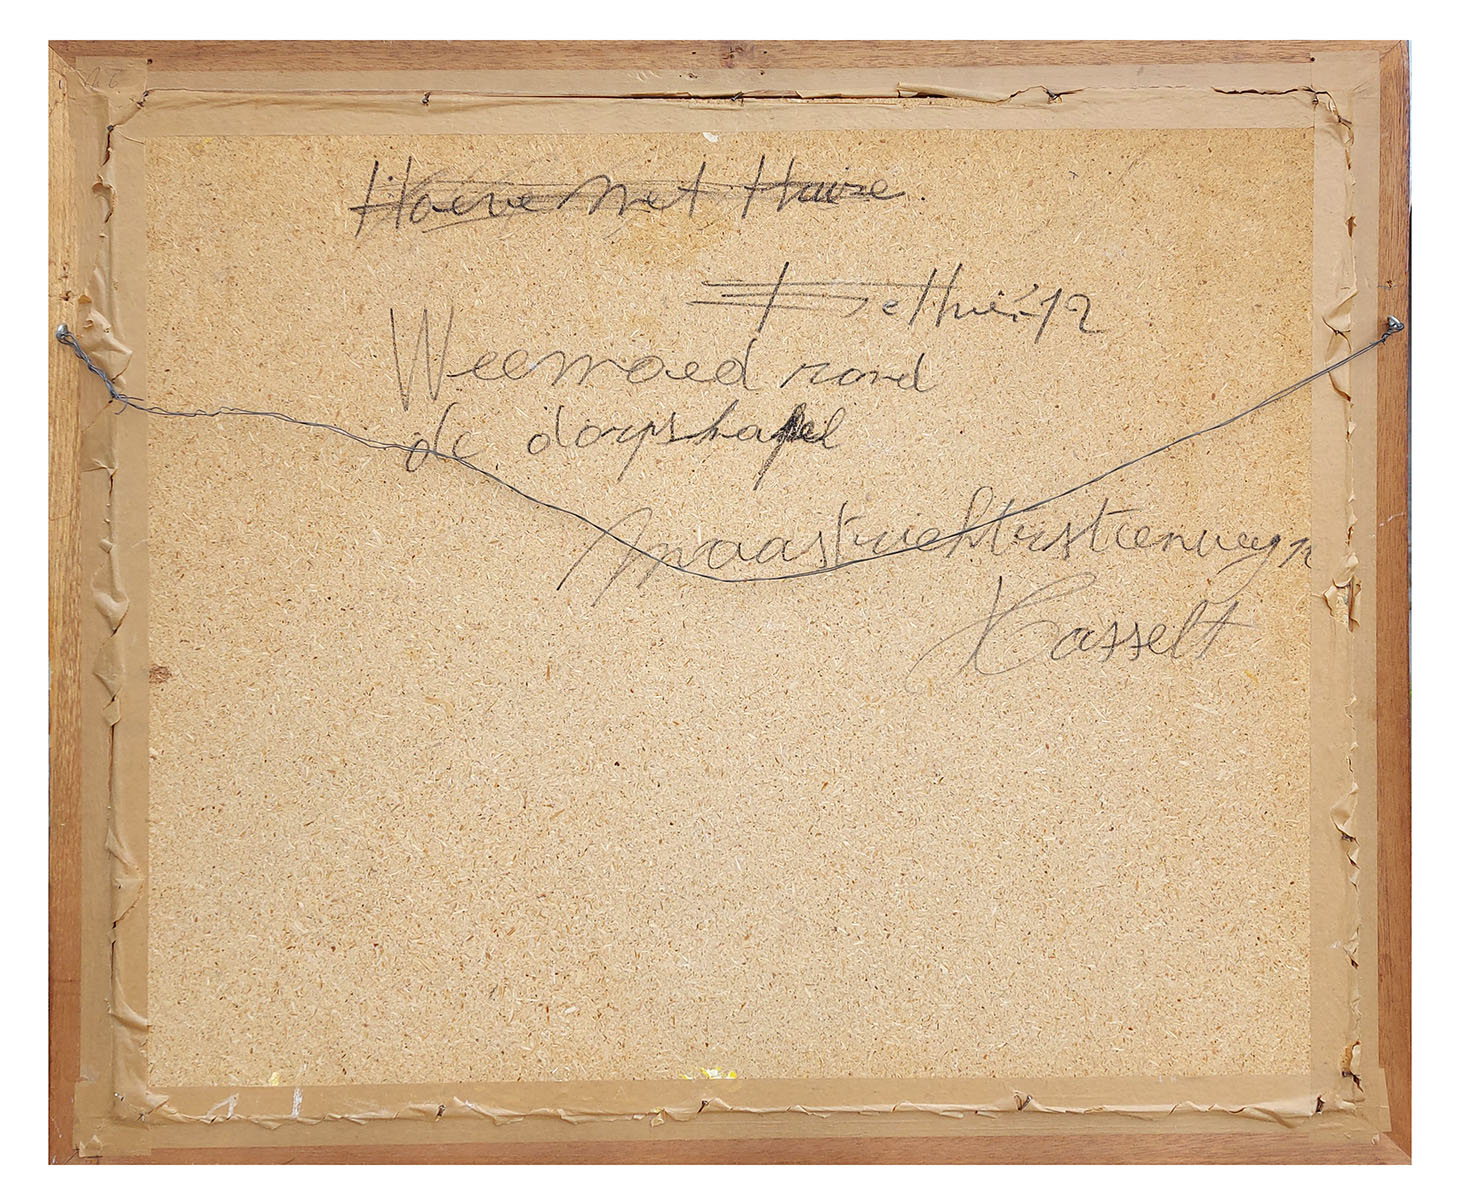 Hoeve Met Huize.
Weemoed rond
de dorpskapel
Maastrichtersteenweg
Hasselt